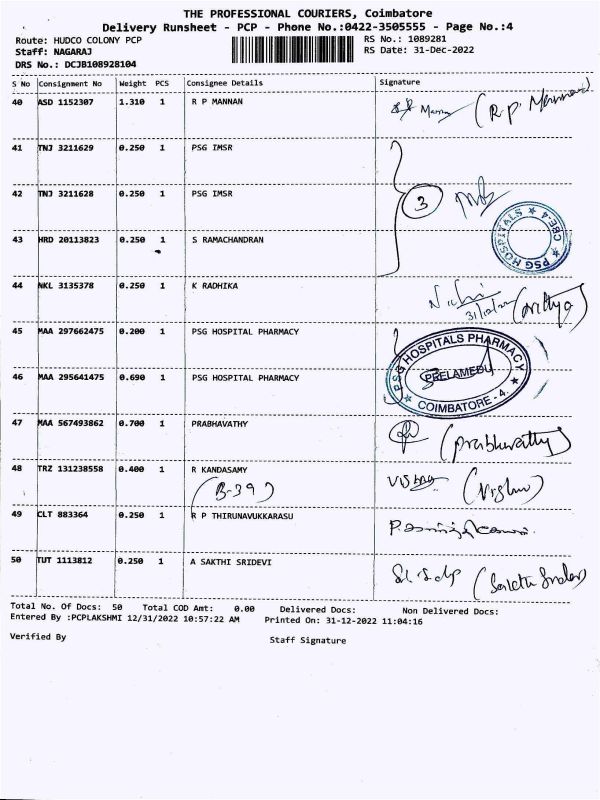 THE PROFESSIONAL COURIERS, Coimbatore
Delivery Runsheet - PCP - Phone No.:0422-3505555 - Page No.:4
Route: HUDCO COLONY PCP RS No.: 1089281
Staff: NAGARAJ RS Date: 31-Dec-2022
DRS No.: DCJB108928104
S No Consignment No Weight PCS Consignee Details Signature
40 ASD 1152307 1.310 1 R P MANNAN (R.P. Mannan)
41 TNJ 3211629 0.250 1 PSG IMSR
42 TNJ 3211628 0.250 1 PSG IMSR 3
PSG HOSPITALS ★ CBE-4 ★
43 HRD 20113823 0.250 1 S RAMACHANDRAN
44 NKL 3135378 0.250 1 K RADHIKA
45 MAA 297662475 0.200 1 PSG HOSPITAL PHARMACY
PSG HOSPITALS PHARMACY
PEELAMEDU
★ COIMBATORE - 4. ★
46 MAA 295641475 0.690 1 PSG HOSPITAL PHARMACY
47 MAA 567493862 0.700 1 PRABHAVATHY (Prabhavathy)
48 TRZ 131238558 0.400 1 R KANDASAMY (Vishnu)
(B-39)
49 CLT 883364 0.250 1 R P THIRUNAVUKKARASU
50 TUT 1113812 0.250 1 A SAKTHI SRIDEVI
Total No. Of Docs: 50 Total COD Amt: 0.00 Delivered Docs: Non Delivered Docs:
Entered By :PCPLAKSHMI 12/31/2022 10:57:22 AM Printed On: 31-12-2022 11:04:16
Verified By Staff Signature